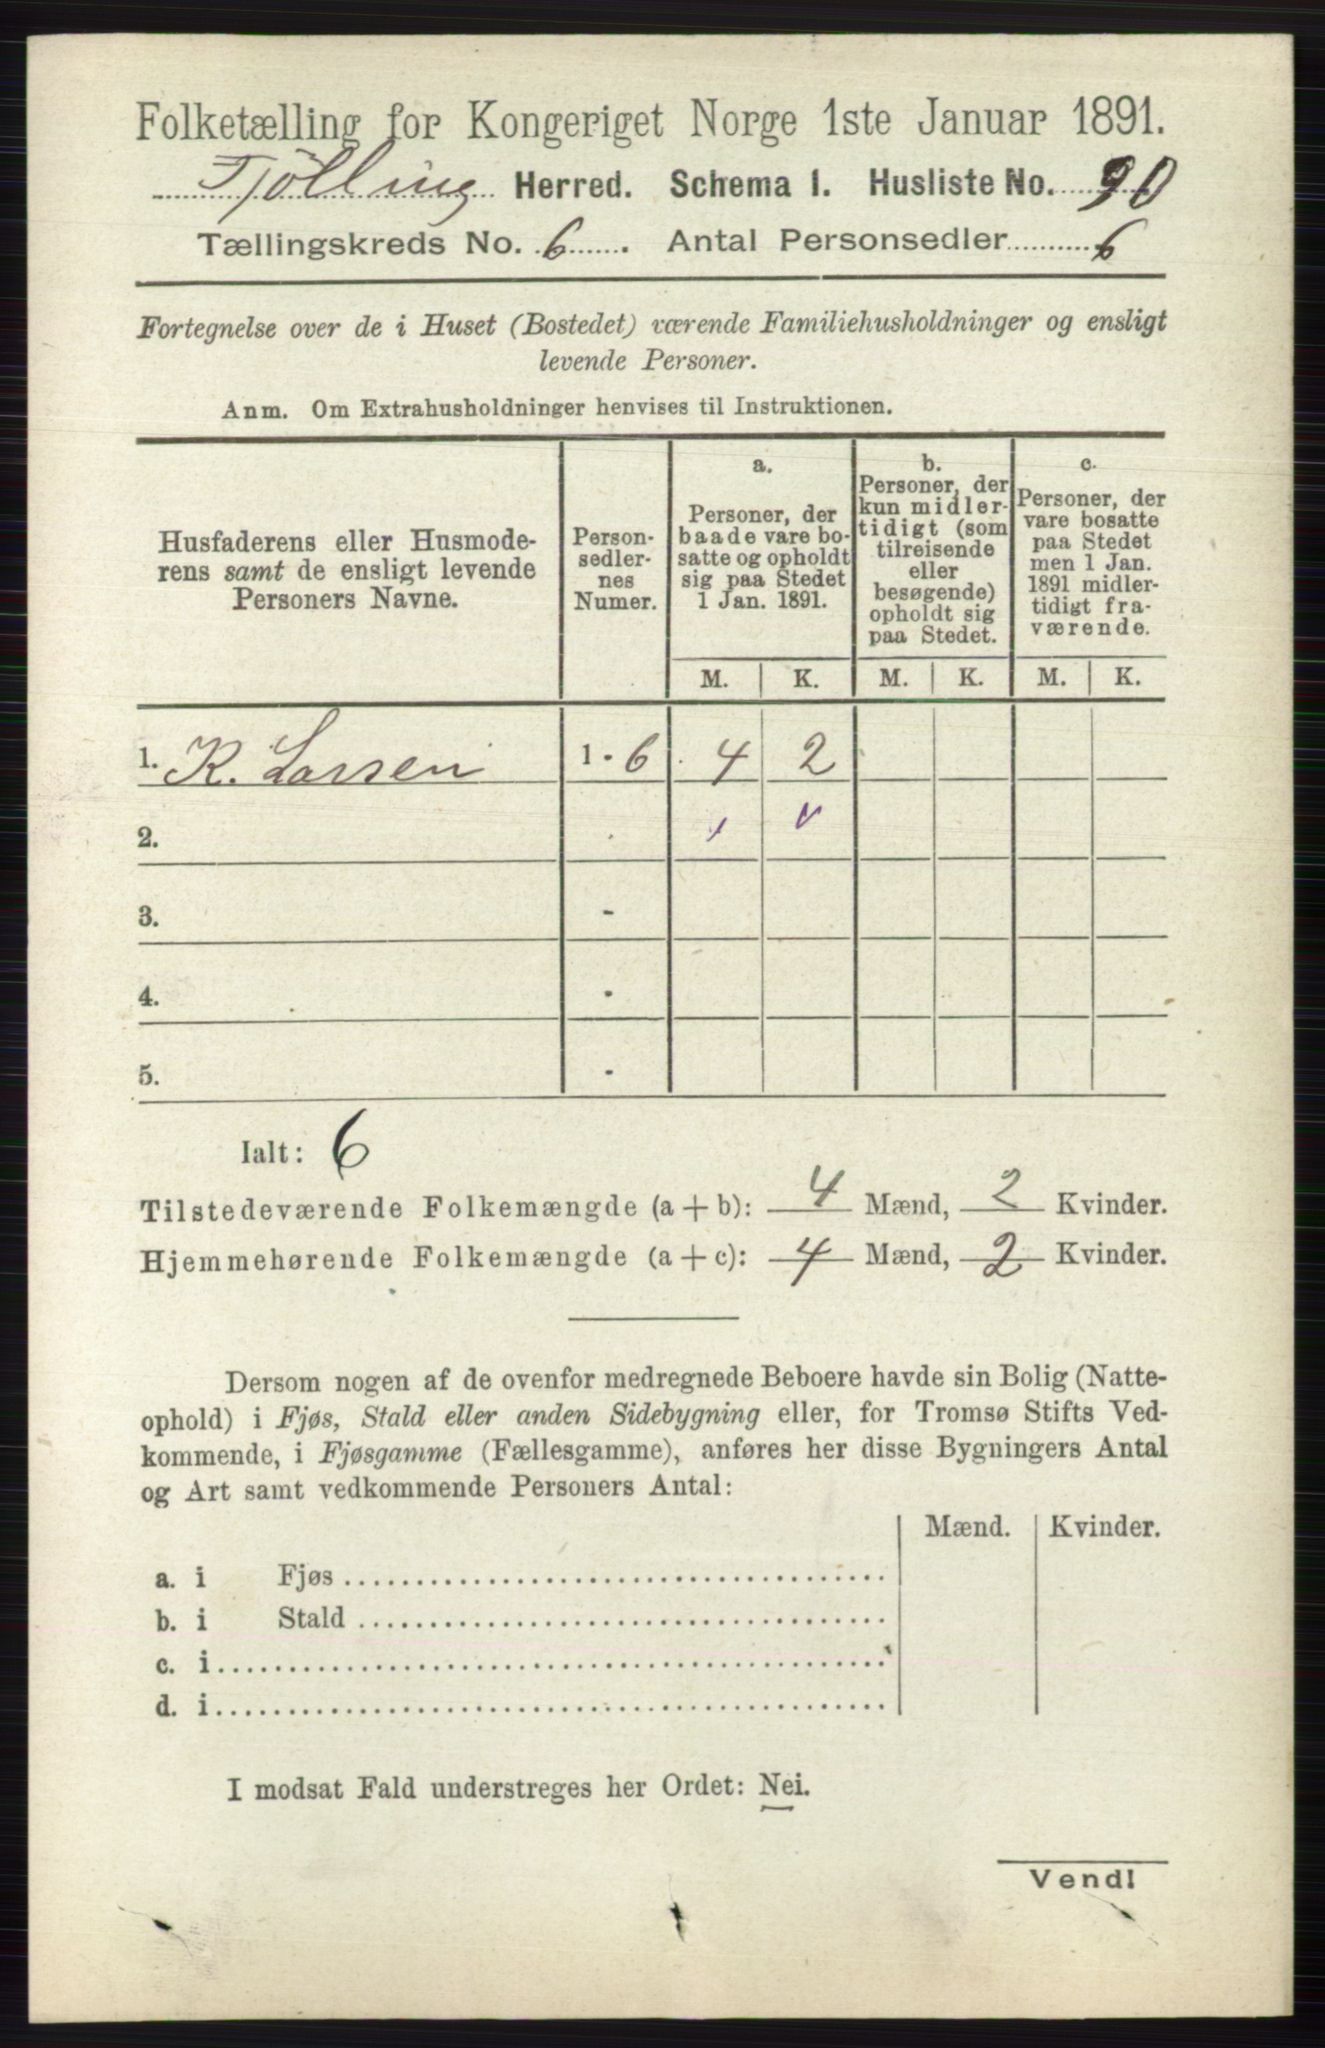 Folketælling for Kongeriget Norge 1ste Januar 1891.
Tjölling Herred. Schema I. Husliste No. 90
Tællingskreds No. 6. Antal Personsedler 6
Fortegnelse over de i Huset (Bostedet) værende Familiehusholdninger og ensligt
levende Personer.
Anm. Om Extrahusholdninger henvises til Instruktionen.
Husfaderens eller Husmode-
rens samt de ensligt levende
Personers Navne.
Person-
sedler-
nes
Numer.
a.
Personer, der
baade vare bo-
satte og opholdt
sig paa Stedet
1 Jan. 1891.
b.
Personer, der
kun midler-
tidigt (som
tilreisende
eller
besøgende)
opholdt sig
paa Stedet.
c.
Personer, der
vare bosatte
paa Stedet
men 1 Jan.
1891 midler-
tidigt fra-
værende.
M. K. M. K. M. K.
1. K. Larsen 1 - 6 4 2
2.
3. -
4. -
5. -
Ialt: 6
Tilstedeværende Folkemængde (a + b): 4 Mænd, 2 Kvinder.
Hjemmehørende Folkemængde (a + c): 4 Mænd, 2 Kvinder.
Dersom nogen af de ovenfor medregnede Beboere havde sin Bolig (Natte-
ophold) i Fjøs, Stald eller anden Sidebygning eller, for Tromsø Stifts Ved-
kommende, i Fjøsgamme (Fællesgamme), anføres her disse Bygningers Antal
og Art samt vedkommende Personers Antal:
Mænd. Kvinder.
a. i Fjøs
b. i Stald
c. i
d. i
I modsat Fald understreges her Ordet: Nei.
Vend!